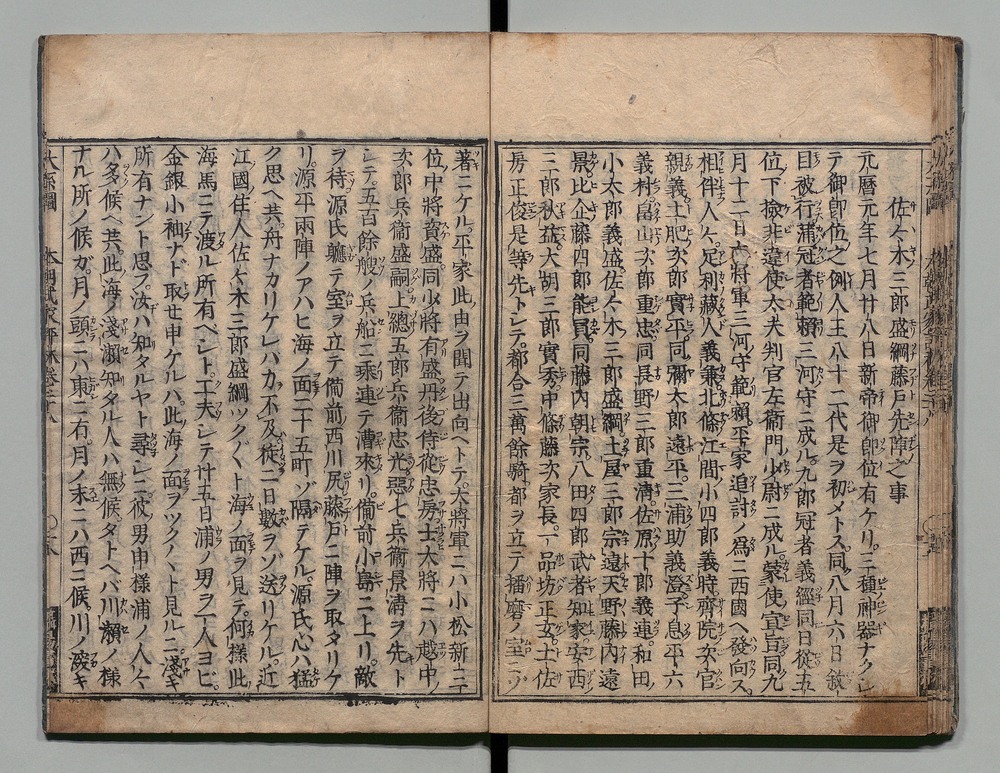 佐々木三郎盛綱藤戸先陣之事
元暦元年七月廿八日新帝御即位有ケリ三種神器ナクシ
テ御即位之例人王八十二代是ヲ初メトス同八月六日敘
目被行蒲冠者範頼三河守ニ成ル九郎冠者義經同日從五
位下撿非違使太夫判官左衛門少尉ニ成ル蒙使宣旨同九
月十二日大將軍三河守範頼平家追討ノ爲ニ西國ヘ發向ス
相伴人々足利藏人義兼北條江間小四郎義時齊院次官
親義土肥次郎實平同彌太郎遠平三浦助義澄子息平六
義村畠山次郎重忠同長野三郎重清佐原十郎義連和田
小太郎義盛佐々木三郎盛綱土屋三郎宗遠天野藤内遠
景比企藤四郎能員同藤内朝宗八田四郎武者知家安西
三郎秋益大胡三郎實秀中條藤次家長一品坊正玄土佐
房正俊是等先トシテ都合三萬餘騎都ヲ立テ播磨ノ室ニゾ
著ニケル平家此由ヲ聞テ出向ヘトテ大將軍ニハ小松新三
位中將資盛同少將有盛丹後侍從忠房士大將ニハ越中
次郎兵衛盛嗣上總五郎兵衛忠光惡七兵衛景清ヲ先ト
シテ五百餘艘ノ兵船ニ乘連テ漕來リ備前小島ニ上リ敵
ヲ待源氏軈テ室ヲ立テ備前西川尻藤戸ニ陣ヲ取タリケ
リ源平兩陣ノアハヒ海ノ面二十五町ゾ隔テケル源氏心ハ猛
ク思ヘ共舟ナカリケレハカ不及徒ニ日數ヲゾ送リケル近
江國住人佐々木三郎盛綱ツク〲ト海ノ面ヲ見テ何樣此
海馬ニテ渡ル所有ベシト工夫シテ廿五日浦ノ男ヲ一人ヨビ
金銀小袖ナド取セ申ケルハ此海ノ面ヲツク〱ト見ルニ淺キ
所有ナント思フ汝ハ知タルヤト尋シニ彼男申樣浦ノ人々
ハ多候ヘ共此海ノ淺瀬知タル人ハ無候タトヘバ川瀬ノ樣
ナル所ノ候ガ月ノ頭ニハ東ニ有月ノ末ニハ西ニ候川ノ淺キ